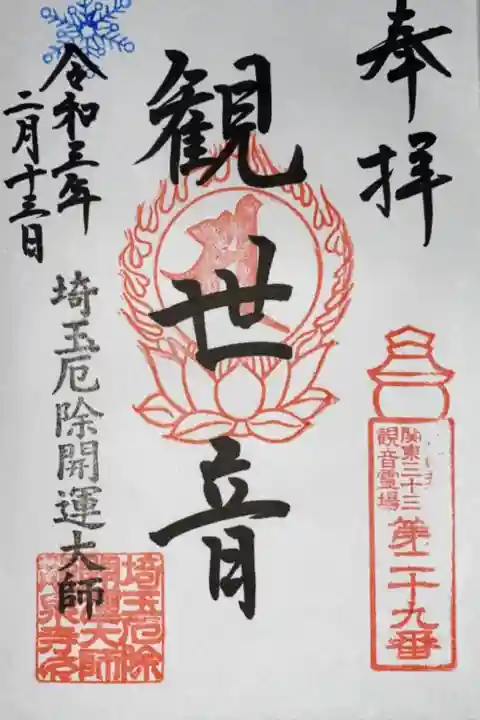 奉拝
関東三十三
観音霊場
第二十九番
観世音
令和三年
二月十三日
埼玉厄除開運大師
埼玉厄除
開運大師